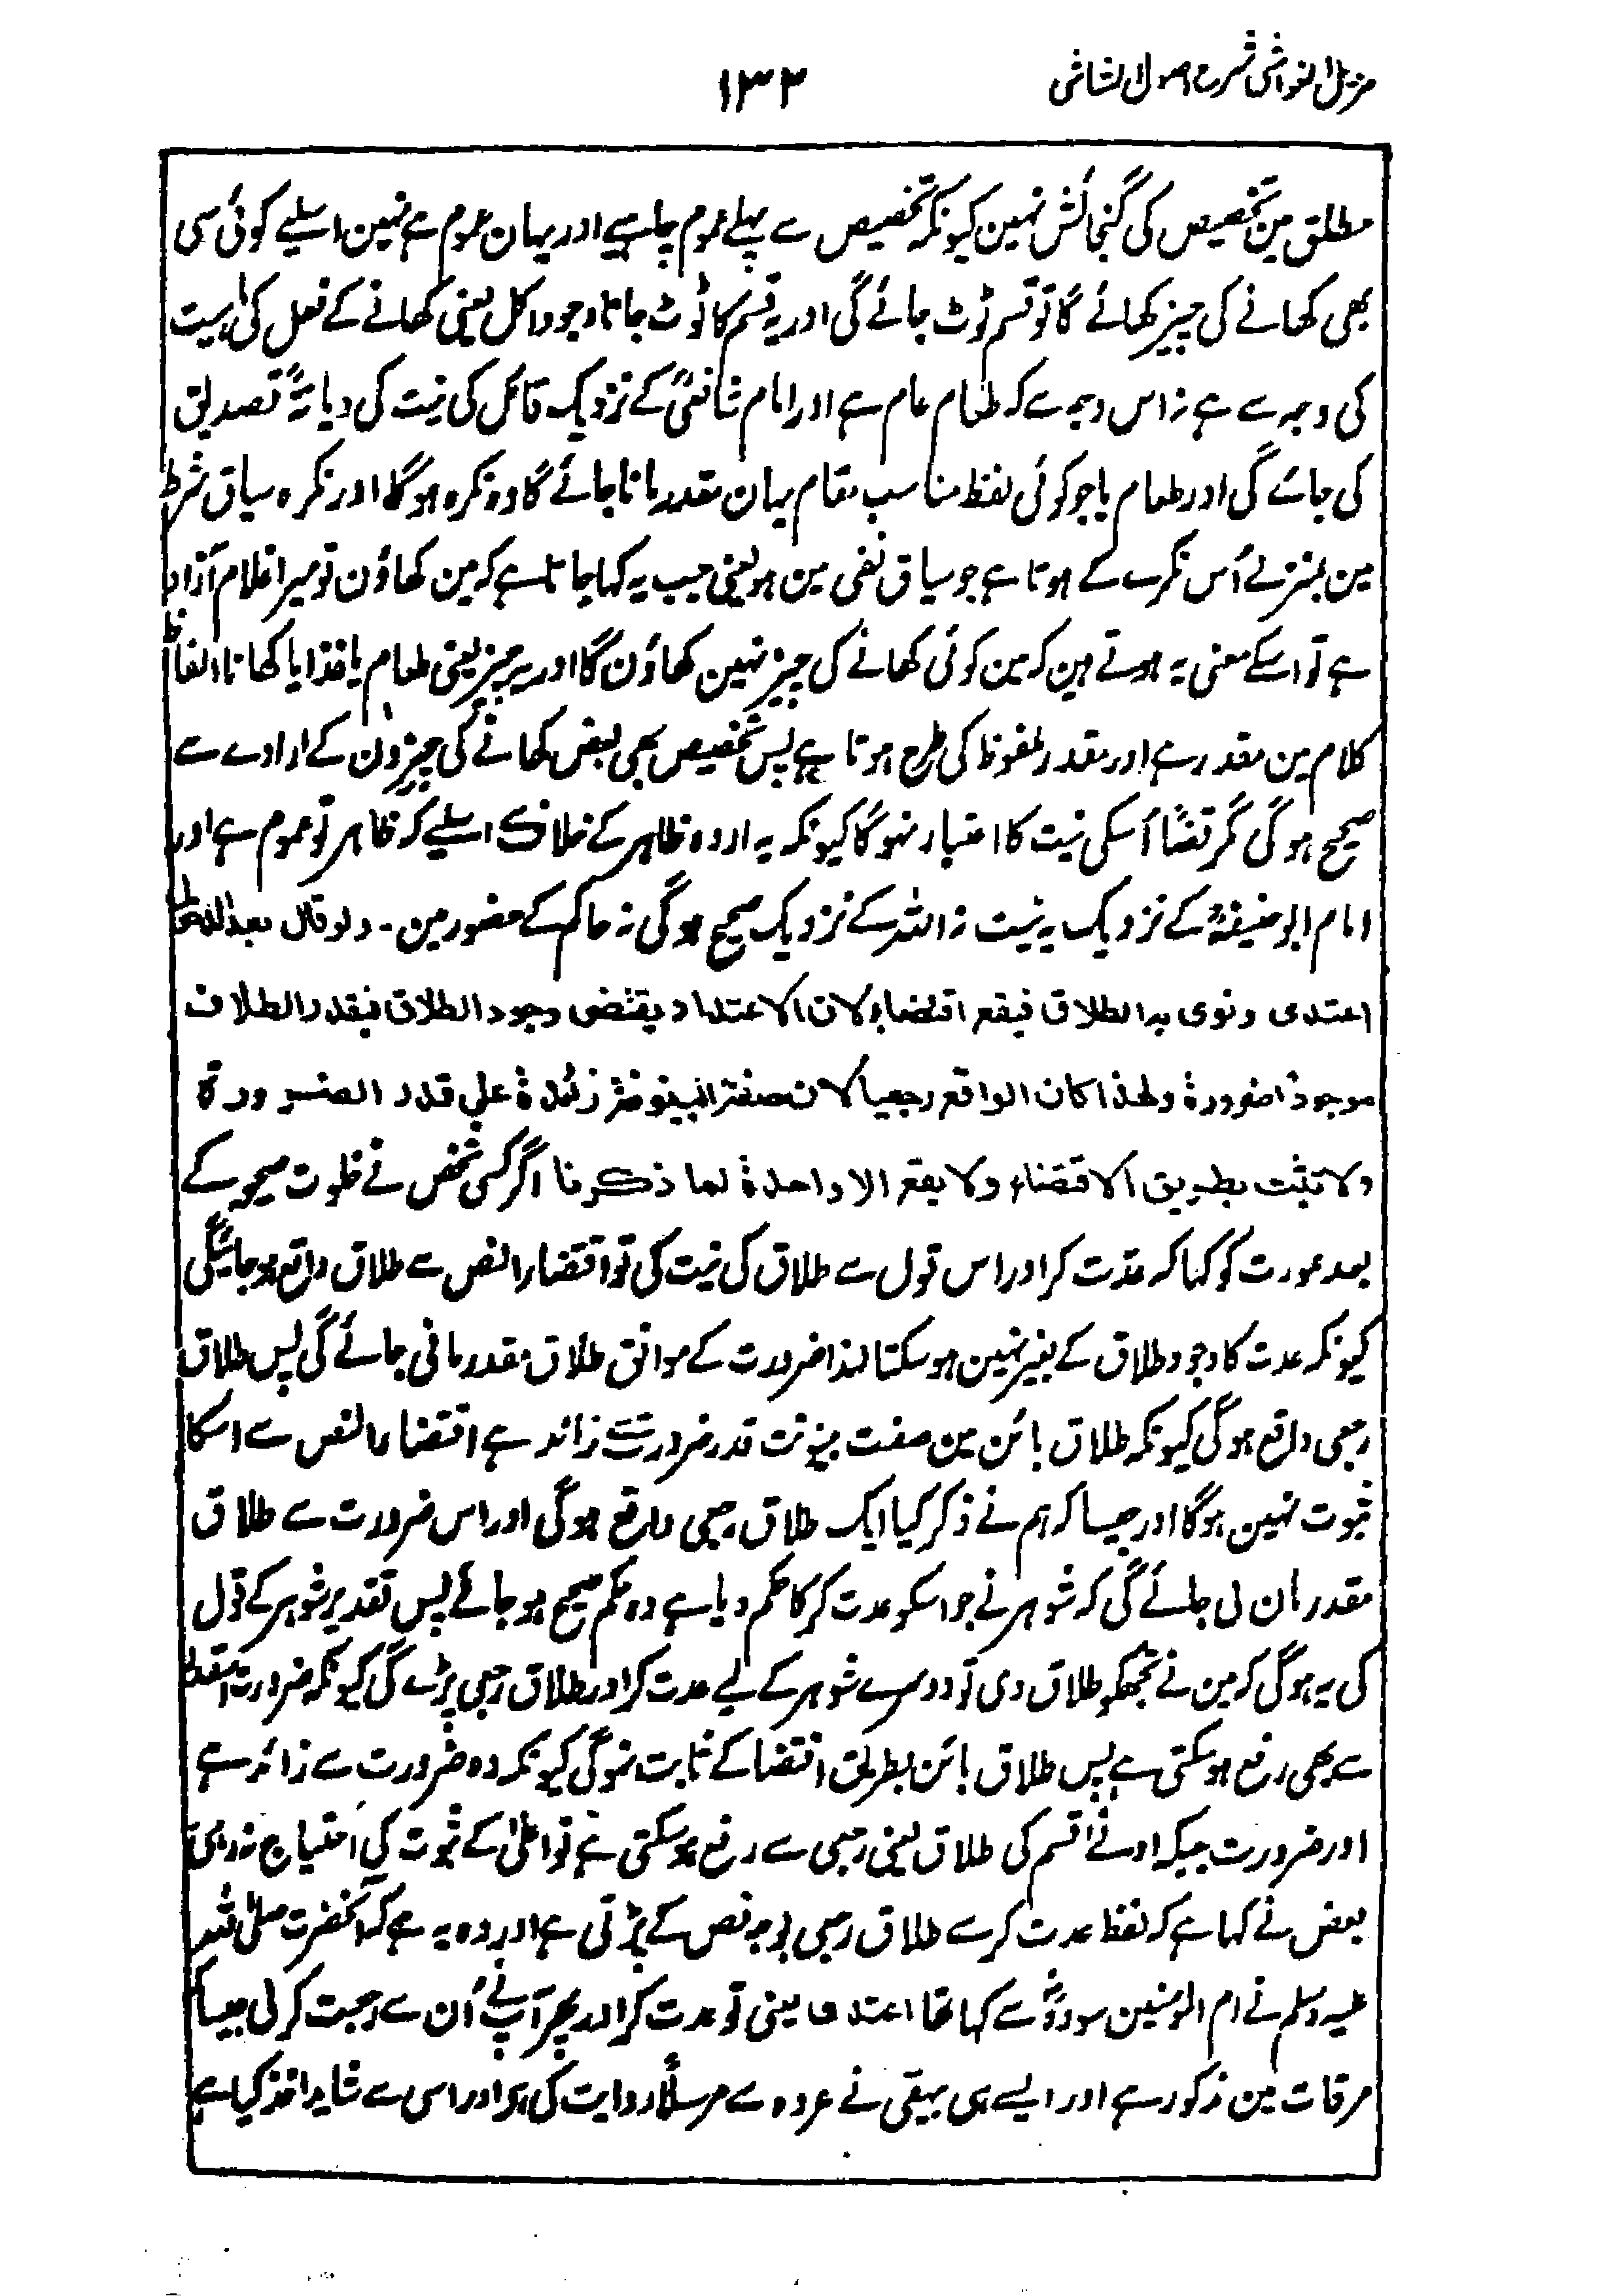 مزیل الغواشی شرح اصول الشاشی
۱۳۲
مطلق مین تخصیص کی گنجائش نہین کیونکہ تخصیص سے پہلے عموم چاہیے اور یہان عموم ہے نہین اسلیے کوئی سی
بھی کھانے کی چیز کھائے گا تو قسم ٹوٹ جائے گی اور یہ قسم کا ٹوٹ جانا وجود اکل یعنی کھانے کے فعل کی ماہیت
کی وجہ سے ہے نہ اس وجہ سے کہ طعام عام ہے اور امام شافعیؒ کے نزدیک قائل کی نیت کی دیانۃً تصدیق
کی جائے گی اور طعام یا جو کوئی لفظ مناسب مقام یہان مقدر مانا جائے گا وہ نکرہ ہوگا اور نکرہ سیاق شرط
مین بمنزلے اُس نکرے کے ہوتا ہے جو سیاق نفی مین ہو یعنی جب یہ کہا جاتا ہے کہ مین کھاؤن تو میرا غلام آزاد
ہے تو اسکے معنی یہ ہوتے ہین کہ مین کوئی کھانے کی چیز نہین کھاؤن گا اور یہ چیز یعنی طعام یا غذا یا کھانا الفاظ
کلام مین مقدر ہے اور مقدر ملفوظ کی طرح ہوتا ہے پس تخصیص بھی بعض کھانے کی چیزون کے ارادے سے
صحیح ہوگی مگر قضاً اُسکی نیت کا اعتبار نہوگا کیونکہ یہ ارادہ ظاہر کے خلاف ہے اسلیے کہ ظاہر تو عموم ہے اور
امام ابوحنیفہؒ کے نزدیک یہ نیت نہ اللہ کے نزدیک صحیح ہوگی نہ حاکم کے حضور مین۔ ولو قال بعد الدخول
اعتدی ونوی بہ الطلاق فیقع اقتضاءً لان الاعتداد یقتضی وجود الطلاق فیقدر الطلاق
موجودًا ضرورة ولهذا كان الواقع رجعيا لان صفة البينونة زائدة على قدر الضرورة
ولا تثبت بطريق الاقتضاء ولا يقع الا واحدة لما ذكرنا اگر کسی شخص نے خلوت صحیحہ کے
بعد عورت کو کہا کہ عدّت کر اور اس قول سے طلاق کی نیت کی تو اقتضاء النص سے طلاق واقع ہوجائیگی
کیونکہ عدت کا وجود طلاق کے بغیر نہین ہوسکتا لہذا ضرورت کے موافق طلاق مقدر مانی جائے گی پس طلاق
رجعی واقع ہوگی کیونکہ طلاق بائن مین صفت بینونت قدر ضرورت سے زائد ہے اقتضاء النص سے اسکا
ثبوت نہین ہوگا اور جیسا کہ ہم نے ذکر کیا ایک طلاق رجعی واقع ہوگی اور اس ضرورت سے طلاق
مقدر مان لی جائے گی کہ شوہر نے جو اسکو عدت کر کا حکم دیا ہے وہ حکم صحیح ہوجائے پس تقدیر شوہر کے قول
کی یہ ہوگی کہ مین نے تجھکو طلاق دی تو دوسرے شوہر کے لیے عدت کر اور طلاق رجعی پڑے گی کیونکہ ضرورت اسقدر
سے بھی رفع ہوسکتی ہے پس طلاق بائن بطریق اقتضا کے ثابت نہوگی کیونکہ وہ ضرورت سے زائد ہے
اور ضرورت جبکہ ادنےٰ قسم کی طلاق یعنی رجعی سے رفع ہوسکتی ہے تو اعلیٰ کے ثبوت کی احتیاج نہ رہی
بعض نے کہا ہے کہ لفظ عدت کر سے طلاق رجعی بوجہ نص کے پڑتی ہے اور وہ یہ ہے کہ آنحضرت صلی اللہ
علیہ وسلم نے ام المومنین سودہؓ سے کہا تھا اعتدی یعنی تو عدت کر اور پھر آپ نے اُن سے رجعت کرلی جیسا کہ
مرقات مین مذکور ہے اور ایسے ہی بیہقی نے عروہ سے مرسلاً روایت کی ہے اور اسی سے شاید اخذ کیا ہے